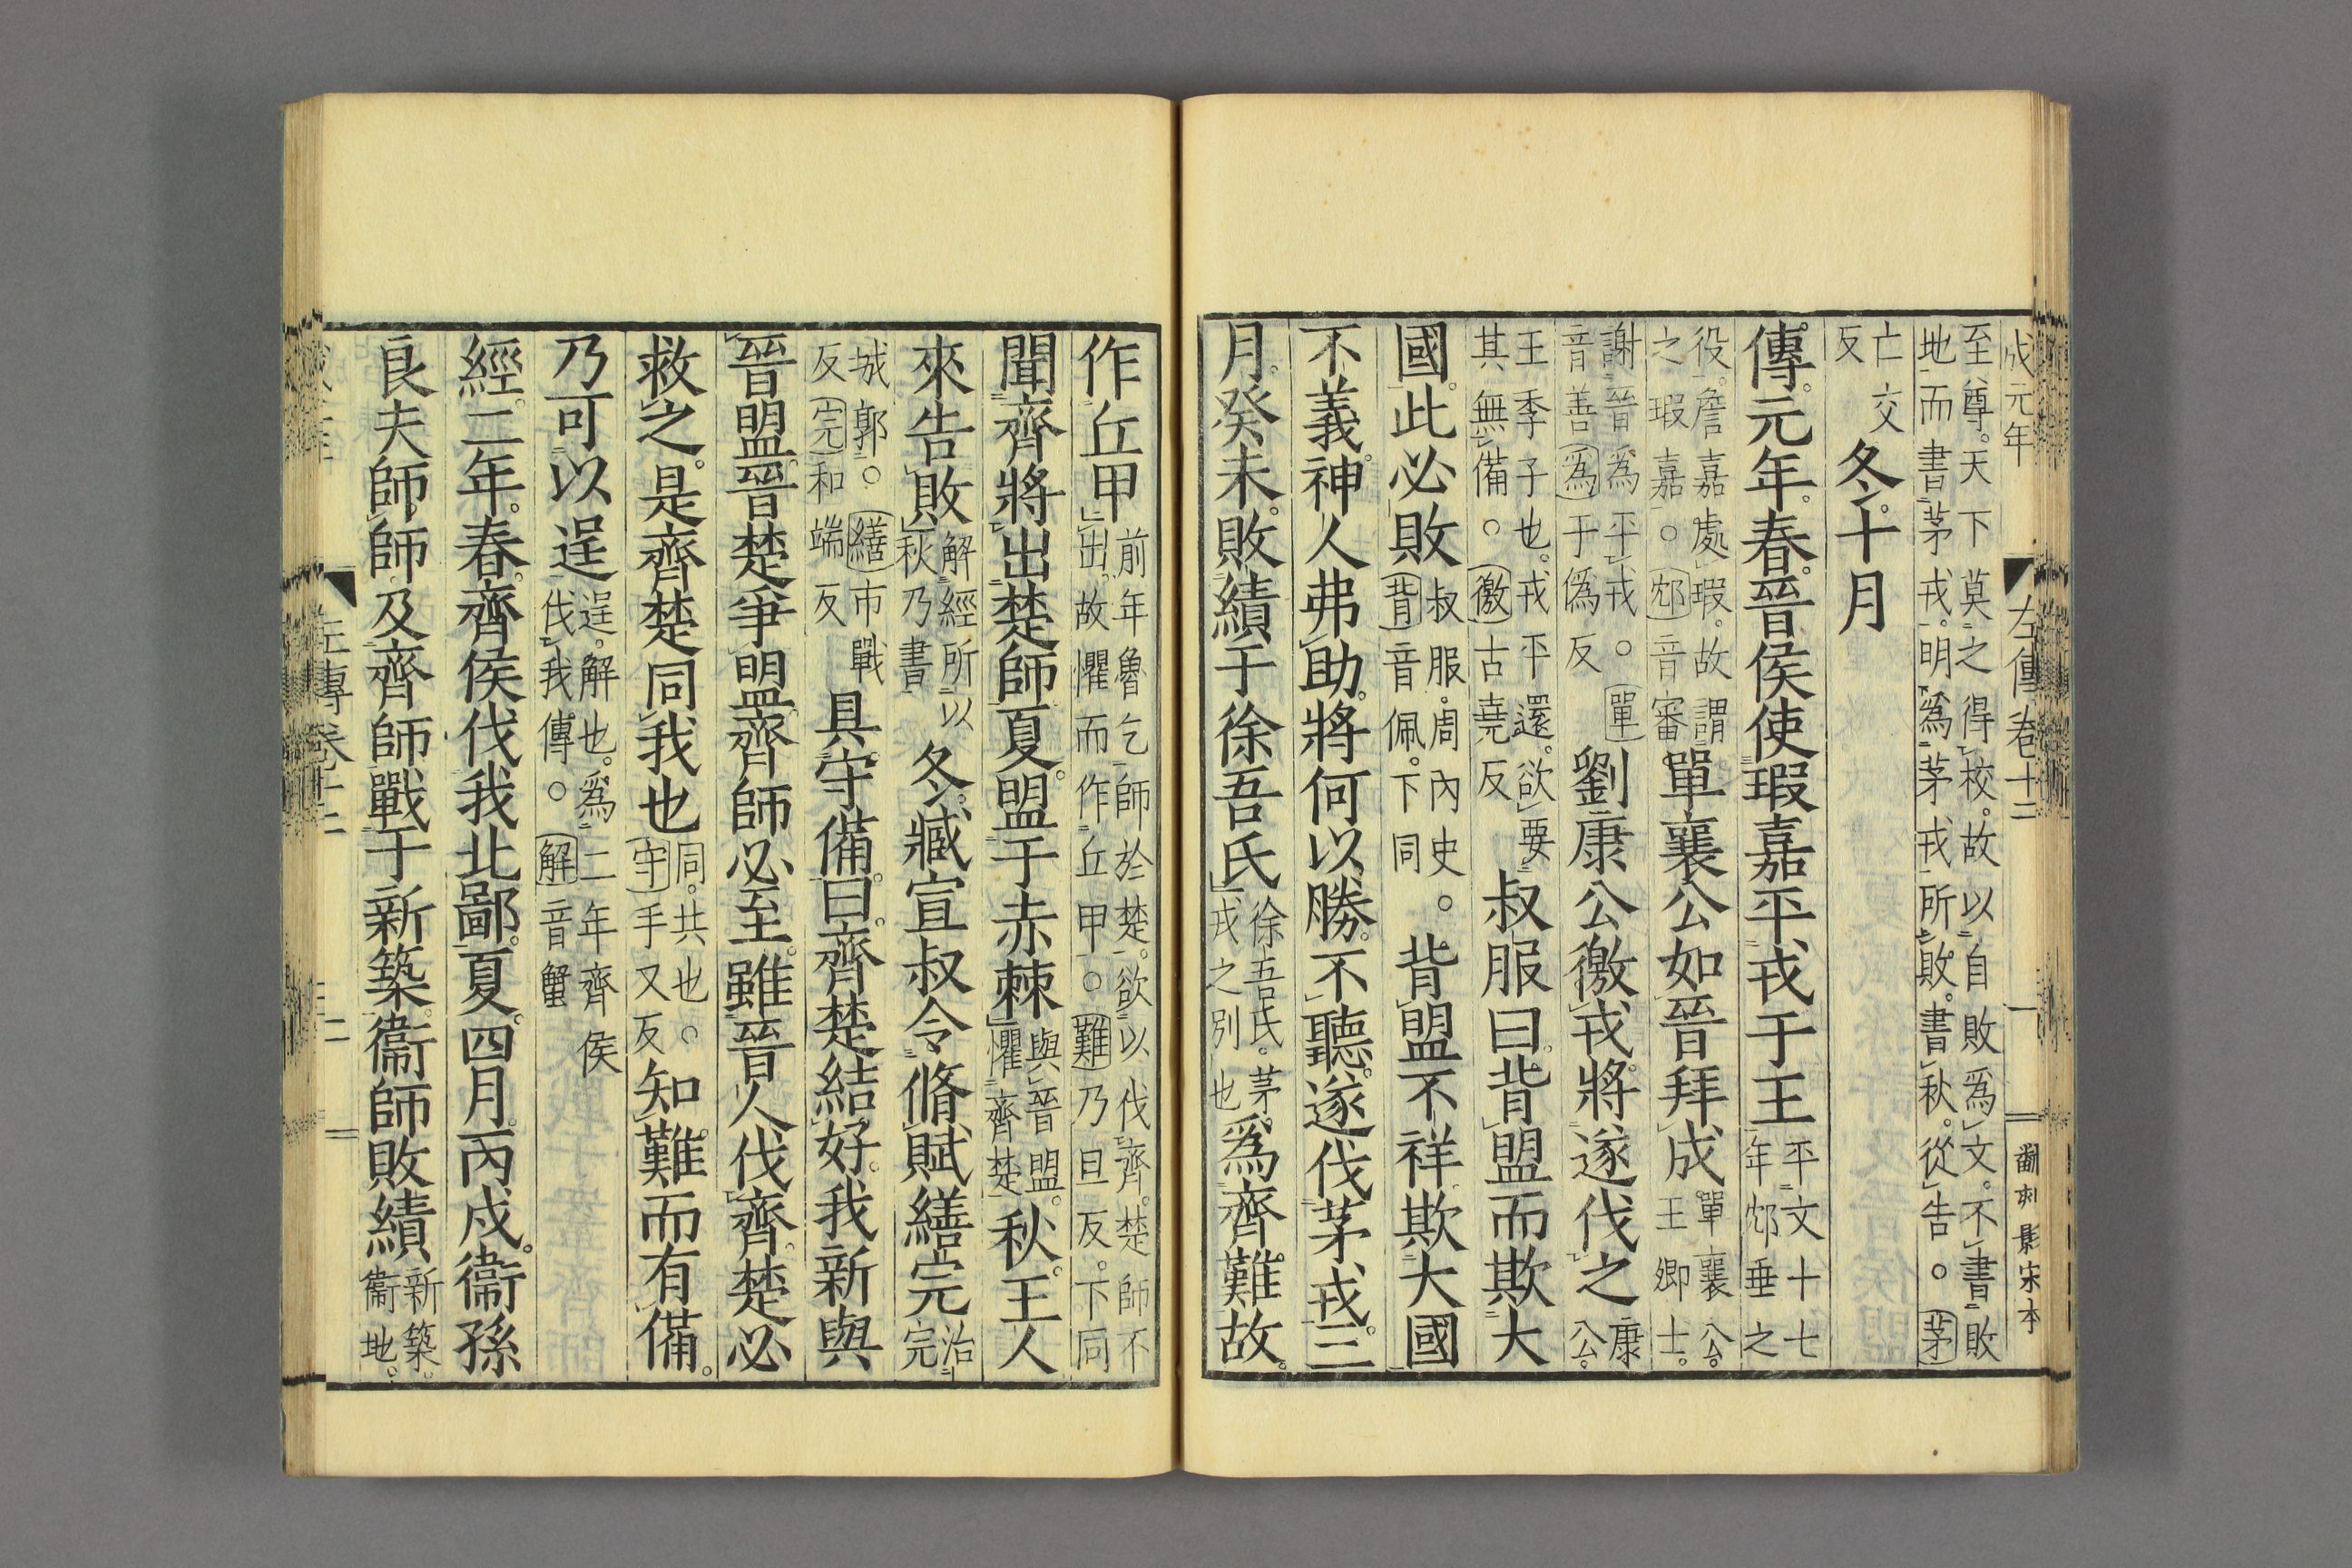 成元年
左傳卷十二
一
翻刻影宋本
至尊。天下莫之得校。故以自敗爲文。不書敗
地而書茅戎。明爲茅戎所敗。書秋。從告。○茅
亡交
反
冬。十月
傳。元年。春。晉侯使瑕嘉平戎于王
平文十七
年邥垂之
役。詹嘉處瑕。故謂
之瑕嘉。○邥音審
單襄公如晉拜成
單襄公。
王卿士。
謝晉爲平戎。○單
音善爲于僞反
劉康公徼戎。將遂伐之
康
公。
王季子也。戎平還。欲要
其無備。○徼古堯反
叔服曰。背盟而欺大
國。此必敗
叔服。周內史。○
背音佩。下同
背盟不祥。欺大國
不義。神人弗助。將何以勝。不聽。遂伐茅戎。三
月。癸未。敗績于徐吾氏
徐吾氏。茅
戎之別也
爲齊難故。
作丘甲
前年魯乞師於楚。欲以伐齊。楚師不
出。故懼而作丘甲。○難乃旦反。下同
聞齊將出楚師。夏。盟于赤棘
與晉盟。
懼齊楚
秋。王人
來告敗
解經所以
秋乃書
冬。臧宣叔令脩賦繕完
治
完
城郭。○繕市戰
反完和端反
具守備。曰。齊楚結好。我新與
晉盟。晉楚爭盟。齊師必至。雖晉人伐齊。楚必
救之。是齊楚同我也
同。共也。○
守手又反
知難而有備。
乃可以逞
逞。解也。爲二年齊侯
伐我傳。○解音蟹
經。二年。春。齊侯伐我北鄙。夏。四月。丙戌。衞孫
良夫師師。及齊師戰于新築。衞師敗績
新築。
衞地。
左傳卷十二
二